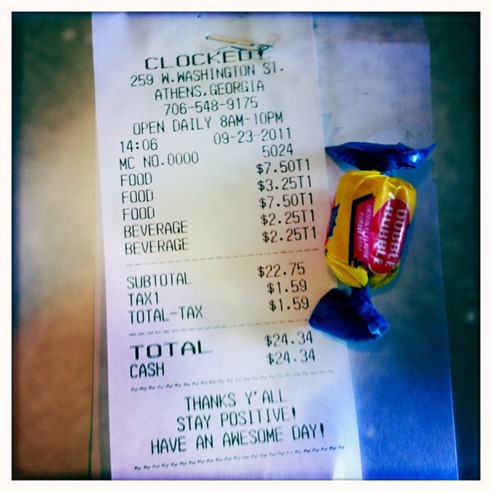 CLOCKED!
259 W.WASHINGTON ST.
ATHENS,GEORGIA
706-548-9175
OPEN DAILY 8AM-10PM
14:06 09-23-2011
MC NO.0000 5024
FOOD $7.50T1
FOOD $3.25T1
FOOD $7.50T1
BEVERAGE $2.25T1
BEVERAGE $2.25T1
SUBTOTAL $22.75
TAX1 $1.59
TOTAL-TAX $1.59
TOTAL $24.34
CASH $24.34
THANKS Y'ALL
STAY POSITIVE!
HAVE AN AWESOME DAY!
DUBBLE
BUBBLE